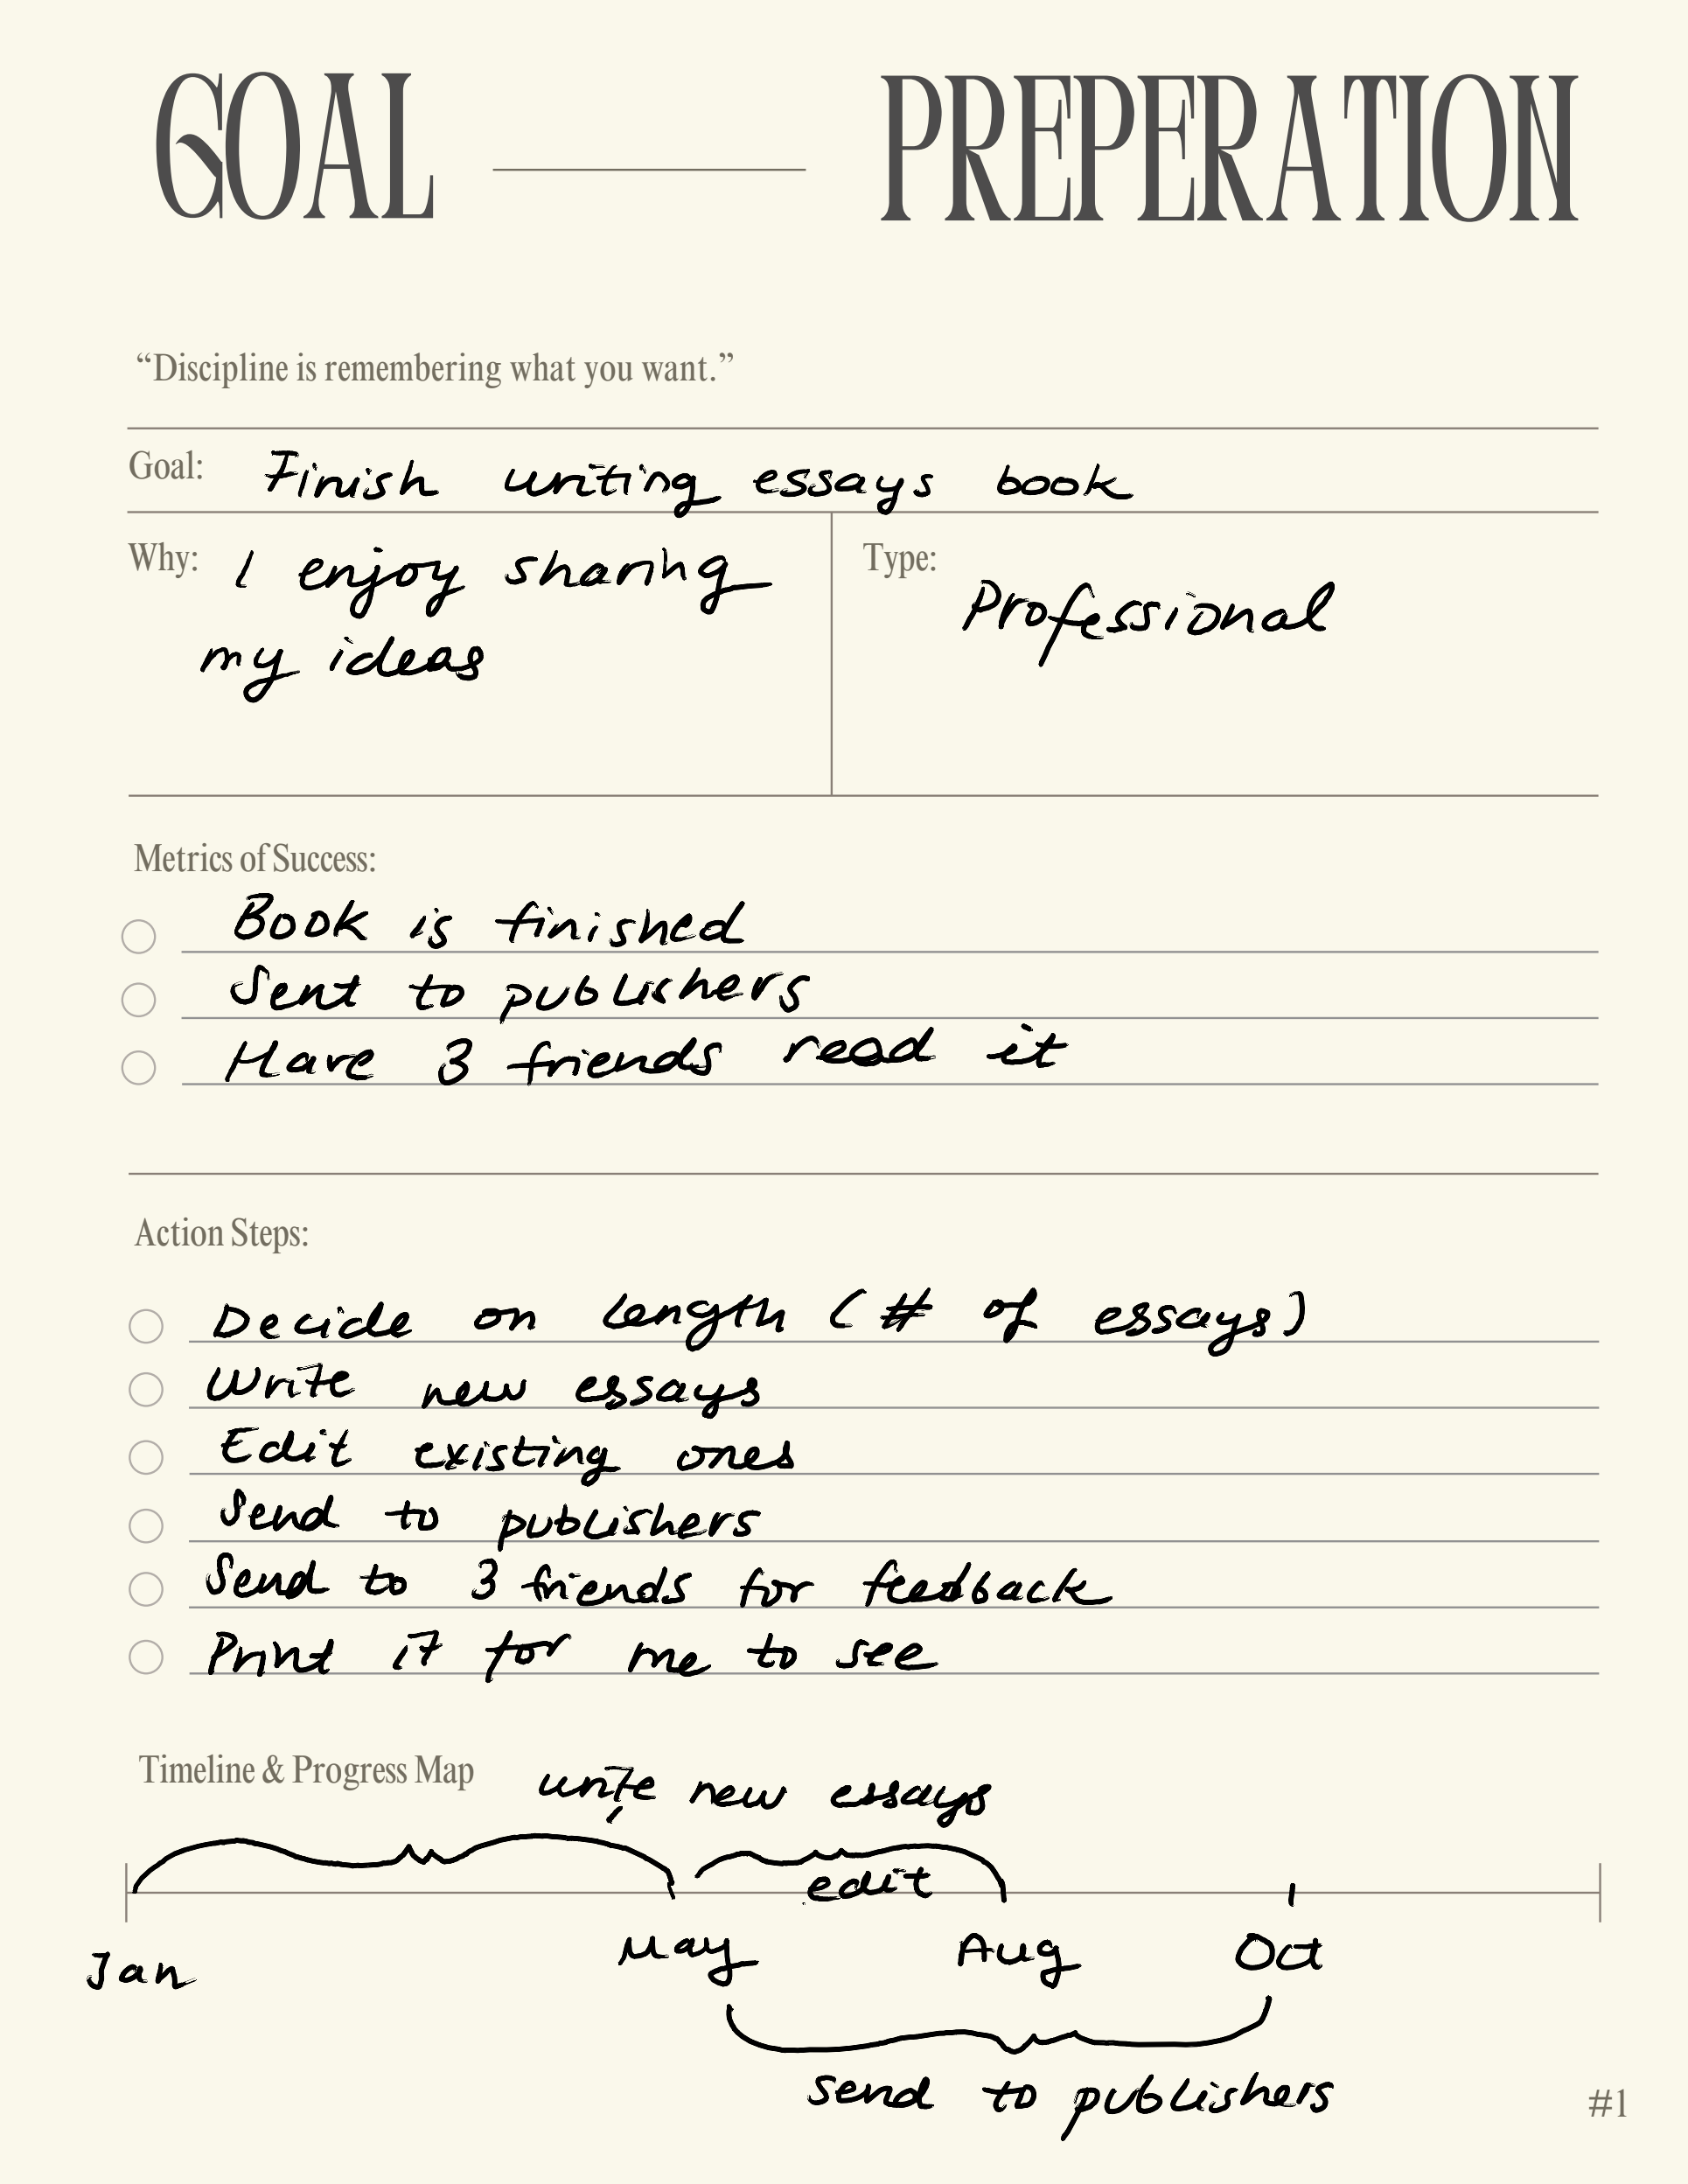 GOAL PREPERATION
“Discipline is remembering what you want.”
Goal: Finish writing essays book
Why: I enjoy sharing
my ideas
Type: Professional
Metrics of Success:
Book is finished
Sent to publishers
Have 3 friends read it
Action Steps:
Decide on length (# of essays)
Write new essays
Edit existing ones
Send to publishers
Send to 3 friends for feedback
Print it for me to see
Timeline & Progress Map
write new essays
edit
Jan May Aug Oct
send to publishers
#1